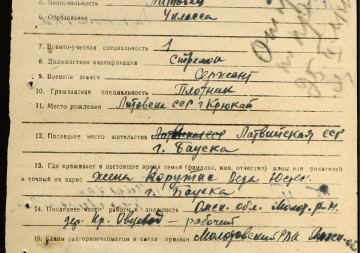 5. Национальность Литовец
6. Образование 4 класса
7. Военно-учетная специальность 1
8. Должностная квалификация стрелок
9. Военное звание Сержант
10. Гражданская специальность Плотник
11. Место рождения Литовская ССР г. Крюкай
12. Последнее место жительства Латвийская ССР
г. Бауска
13. Где проживает в настоящее время семья (фамилия, имя, отчество) жены или родителей
и точный их адрес Жена
г. Бауска
14. Последнее место работы и должность Омск. обл. Молот. р-н.
дер. рабочий
15. Каким райгорвоенкоматом и когда призван Молотовский РВК